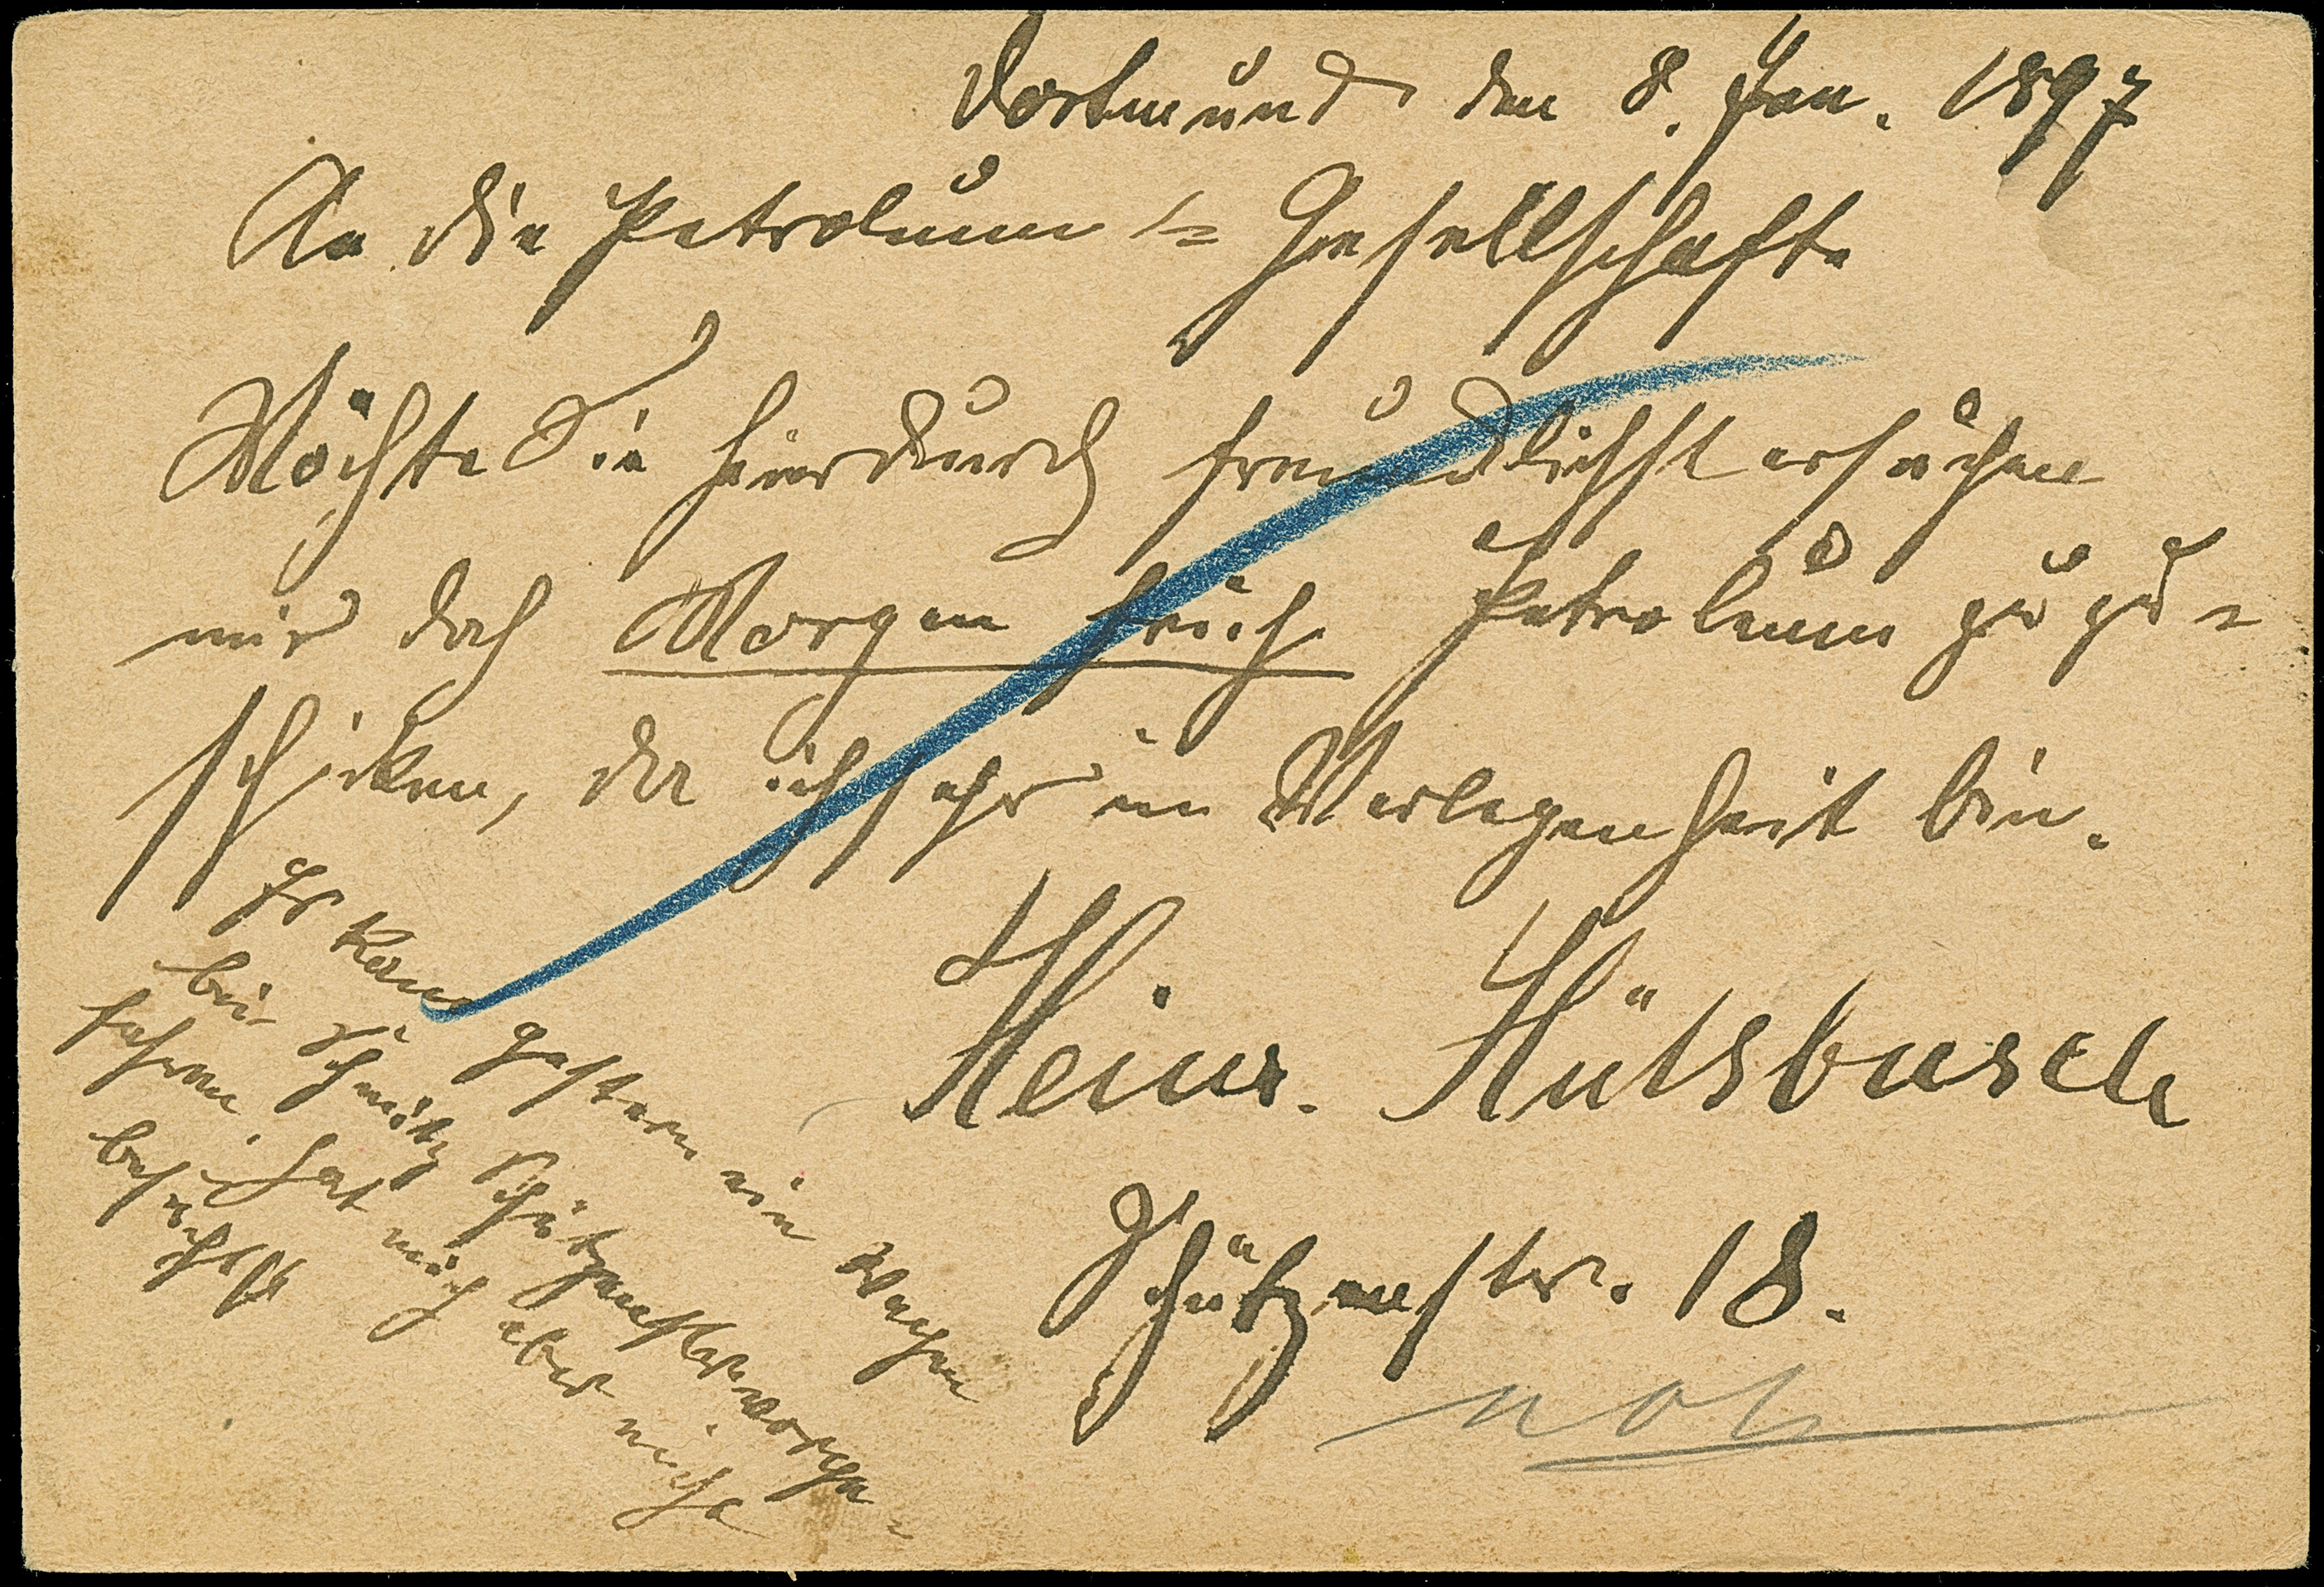 Dortmund den 8. Jan. 1897
An die Petroleum-Gesellschaft
Möchte Sie hierdurch freundlichst ersuchen
mir doch Morgen früh Petroleum zu zu-
schicken, da ich sehr in Verlegenheit bin.
Heinr. Hütsbusch
Schützenstr. 18.
Es kam gestern ein Wagen
bei Schmitz Schützenstr vorge-
fahren hat mich aber nicht
besucht